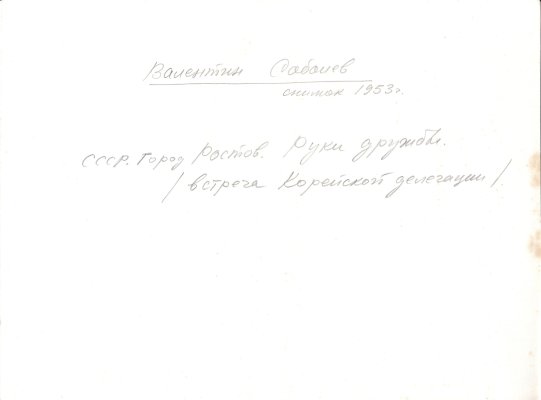 Валентин Соболев
снимок 1953 г.
СССР. Город Ростов. Руки дружбы.
/ встреча Корейской делегации /.